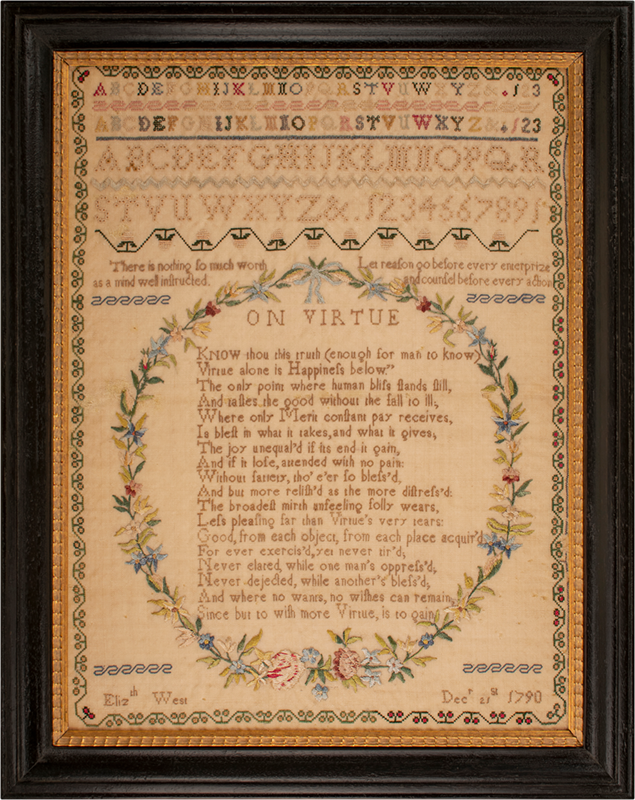 ABCDEFGHIJKLMNOPQRSTVUWXYZ&.123
ABCDEFGHIJKLMNOPQRSTVUWXYZ&.123
ABCDEFGHIJKLMNOPQR
STVUWXYZ&.1234567891
There is nothing ſo much worth
as a mind well inſtructed.
Let reaſon go before every enterprize
and counſel before every action
ON VIRTUE
KNOW thou this truth (enough for man to know)
Virtue alone is Happineſs below."
The only point where human bliſs ſtands ſtill,
And taſtes the good without the fall to ill;
Where only Merit conſtant pay receives,
Is bleſt in what it takes, and what it gives;
The joy unequal'd if its end it gain,
And if it loſe, attended with no pain:
Without ſatiety, tho' e'er ſo bleſs'd,
And but more reliſh'd as the more diſtreſs'd:
The broadeſt mirth unfeeling folly wears,
Leſs pleaſing far than Virtue's very tears:
Good, from each object, from each place acquir'd,
For ever exercis'd, yet never tir'd;
Never elated, while one man's oppreſs'd;
Never dejected, while another's bleſs'd;
And where no wants, no wiſhes can remain,
Since but to wiſh more Virtue, is to gain.
Elizth West
Decr 21st 1790